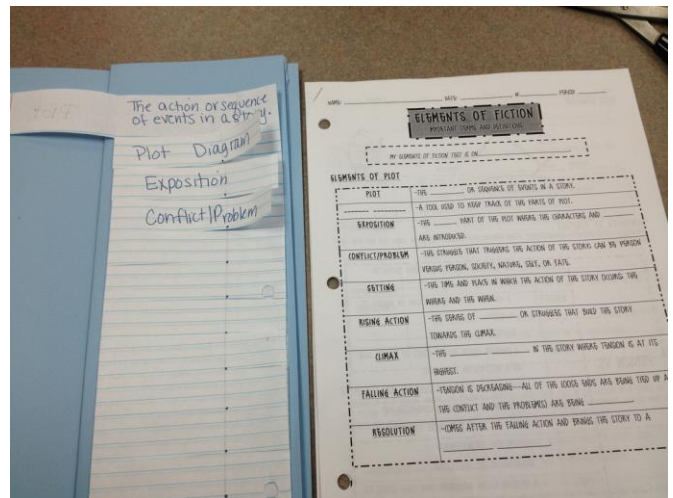 PLOT
The action or sequence
of events in a story.
Plot Diagram
Exposition
Conflict/Problem
NAME: DATE: # PERIOD:
ELEMENTS OF FICTION
IMPORTANT TERMS AND DEFINITIONS
MY ELEMENTS OF FICTION TEST IS ON
ELEMENTS OF PLOT
PLOT
-THE ________ OR SEQUENCE OF EVENTS IN A STORY.
________ ________
-A TOOL USED TO KEEP TRACK OF THE PARTS OF PLOT.
EXPOSITION
-THE ________ PART OF THE PLOT WHERE THE CHARACTERS AND ________
ARE INTRODUCED.
CONFLICT/PROBLEM
-THE STRUGGLE THAT TRIGGERS THE ACTION OF THE STORY; CAN BE PERSON
VERSUS PERSON, SOCIETY, NATURE, SELF, OR FATE.
SETTING
-THE TIME AND PLACE IN WHICH THE ACTION OF THE STORY OCCURS; THE
WHERE AND THE WHEN.
RISING ACTION
-THE SERIES OF ________ OR STRUGGLES THAT BUILD THE STORY
TOWARDS THE CLIMAX.
CLIMAX
-THE ________ ________ IN THE STORY WHERE TENSION IS AT ITS
HIGHEST.
FALLING ACTION
-TENSION IS DECREASING--ALL OF THE LOOSE ENDS ARE BEING TIED UP
THE CONFLICT AND THE PROBLEM(S) ARE BEING ________
RESOLUTION
-COMES AFTER THE FALLING ACTION AND BRINGS THE STORY TO A
________ ________